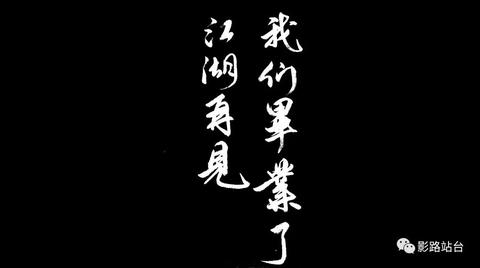 我们畢業了
江湖再見
影路站台